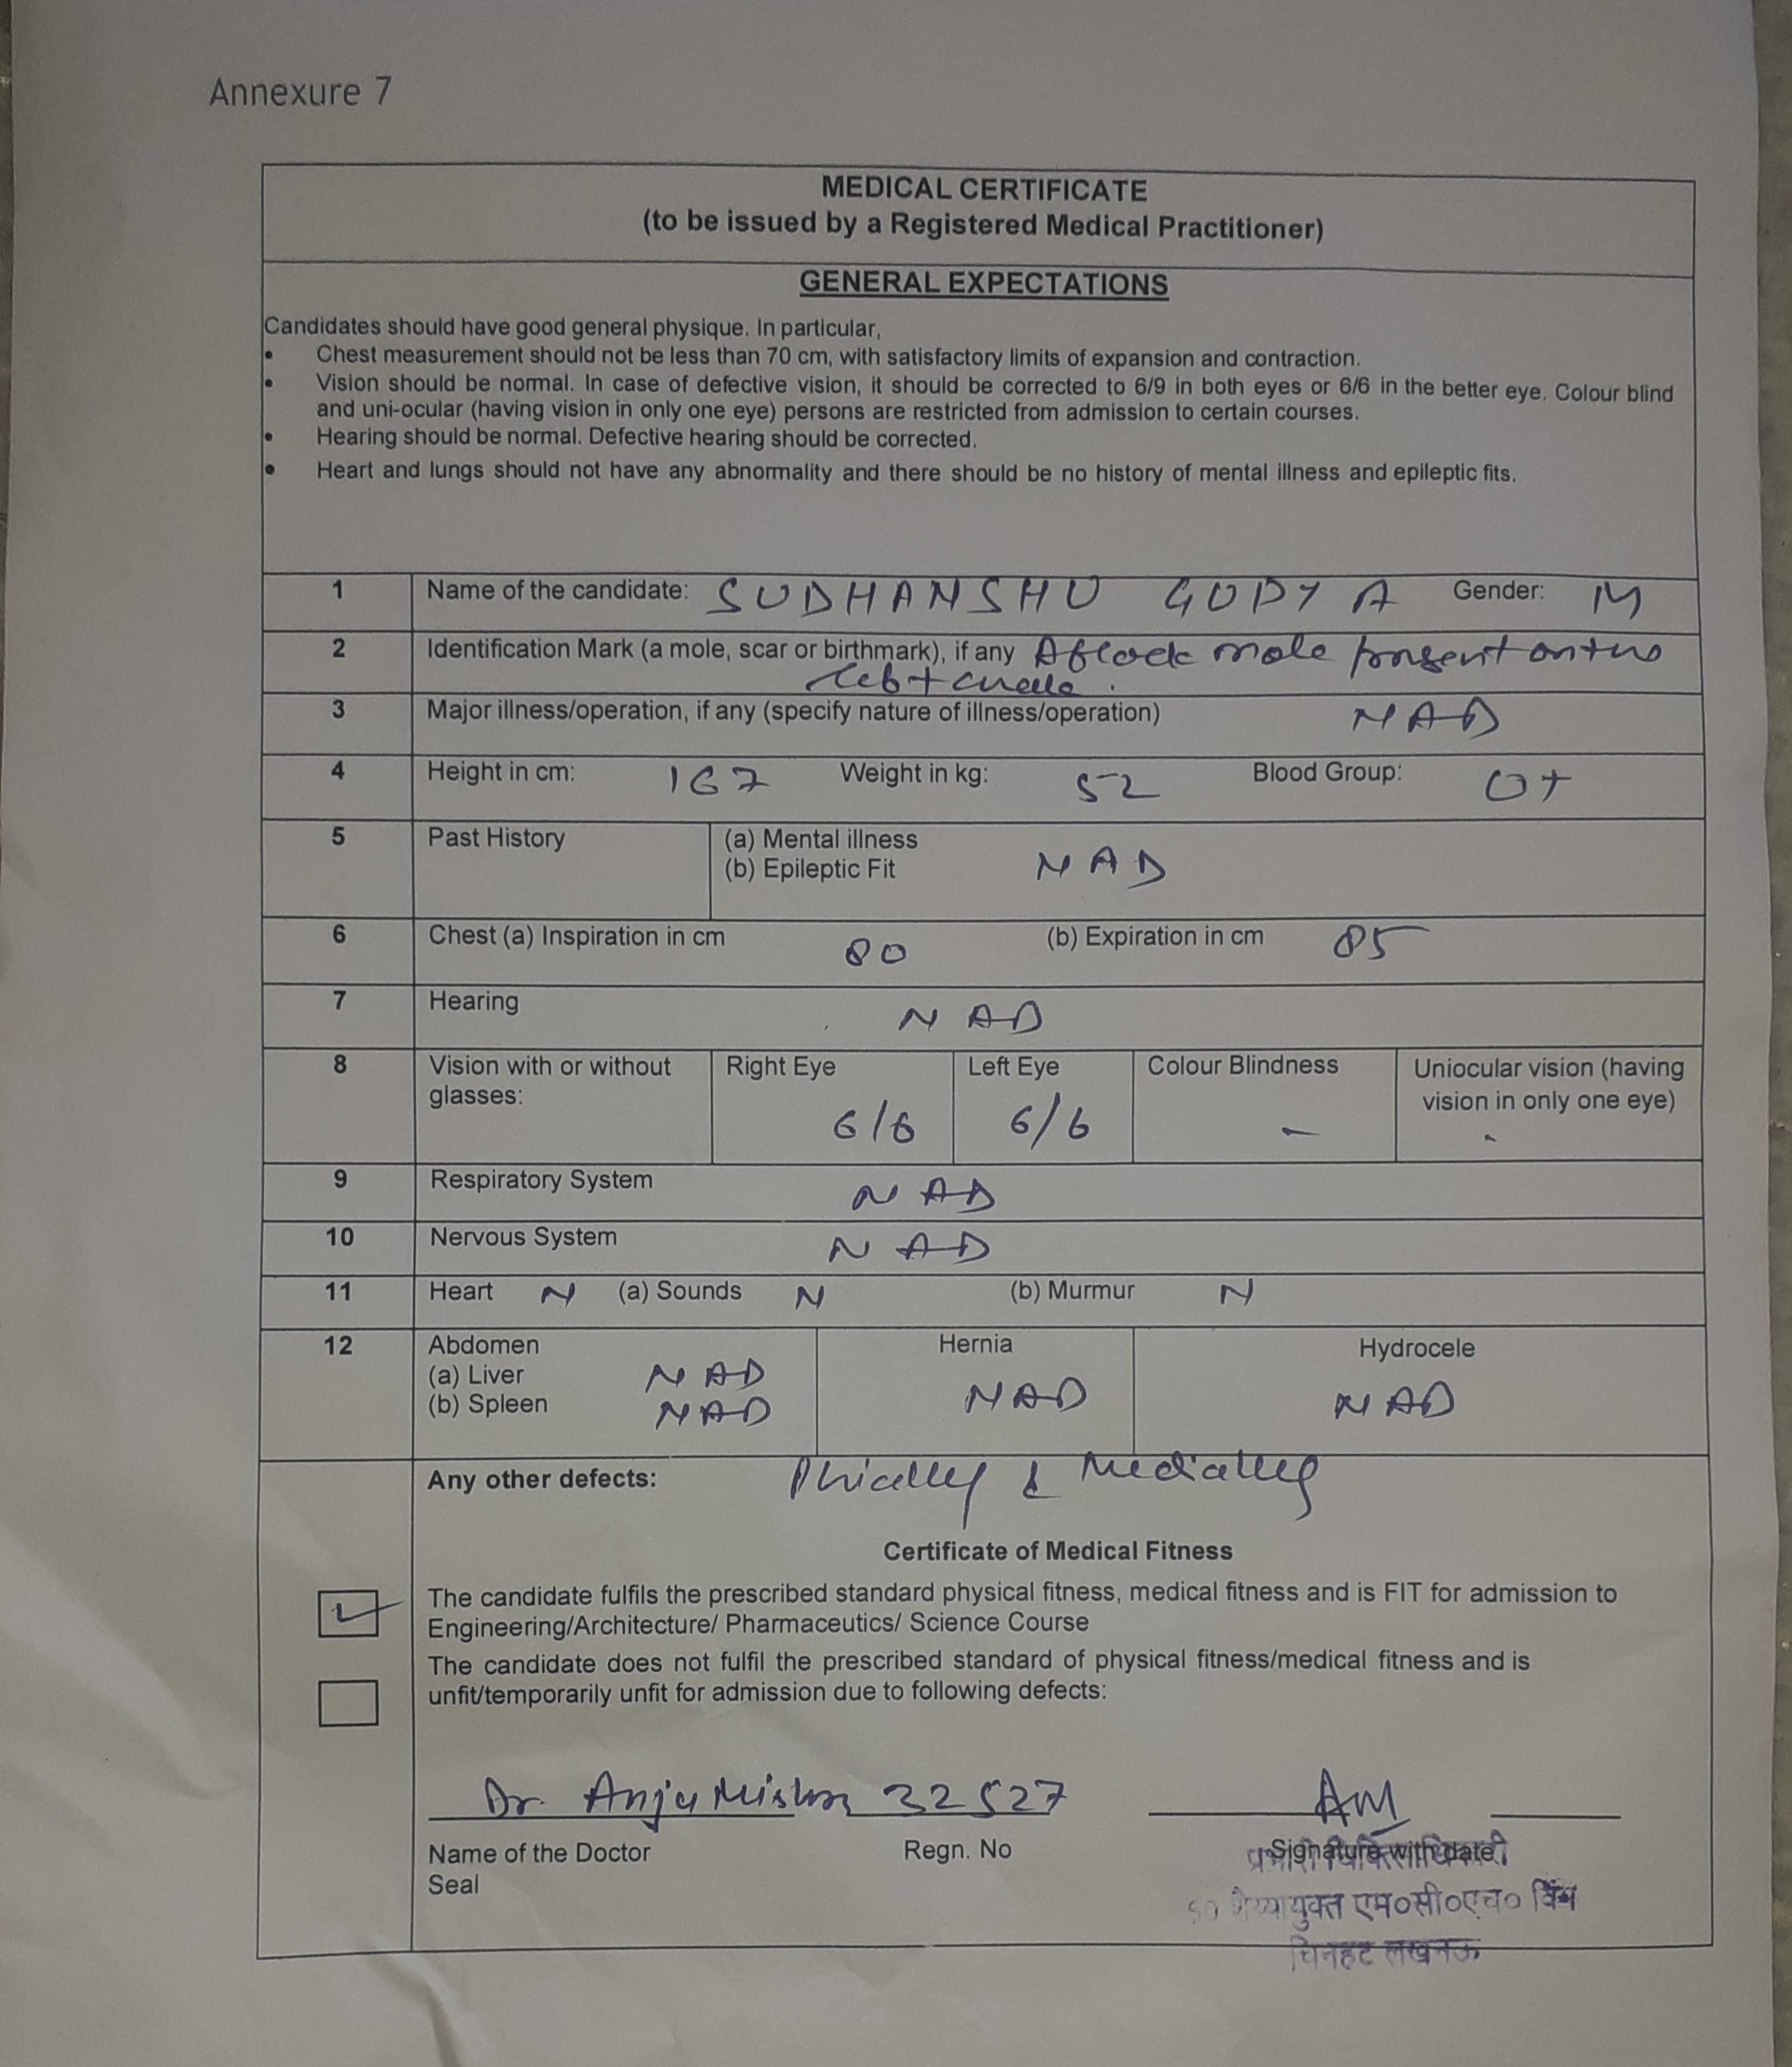 Annexure 7
MEDICAL CERTIFICATE
(to be issued by a Registered Medical Practitioner)
GENERAL EXPECTATIONS
Candidates should have good general physique. In particular,
• Chest measurement should not be less than 70 cm, with satisfactory limits of expansion and contraction.
• Vision should be normal. In case of defective vision, it should be corrected to 6/9 in both eyes or 6/6 in the better eye. Colour blind
and uni-ocular (having vision in only one eye) persons are restricted from admission to certain courses.
• Hearing should be normal. Defective hearing should be corrected.
• Heart and lungs should not have any abnormality and there should be no history of mental illness and epileptic fits.
1 Name of the candidate: SUDHANSHU Gender: M
2 Identification Mark (a mole, scar or birthmark), if any A black mole present on
3 Major illness/operation, if any (specify nature of illness/operation) NAD
4 Height in cm: 167 Weight in kg: 52 Blood Group: O+
5 Past History (a) Mental illness
(b) Epileptic Fit NAD
6 Chest (a) Inspiration in cm 80 (b) Expiration in cm 85
7 Hearing NAD
8 Vision with or without Right Eye Left Eye Colour Blindness Uniocular vision (having
glasses: vision in only one eye)
6/6 6/6 - -
9 Respiratory System NAD
10 Nervous System NAD
11 Heart N (a) Sounds N (b) Murmur N
12 Abdomen Hernia Hydrocele
(a) Liver NAD NAD NAD
(b) Spleen NAD
Any other defects: &
Certificate of Medical Fitness
The candidate fulfils the prescribed standard physical fitness, medical fitness and is FIT for admission to
Engineering/Architecture/ Pharmaceutics/ Science Course
The candidate does not fulfil the prescribed standard of physical fitness/medical fitness and is
unfit/temporarily unfit for admission due to following defects:
Dr. Anju Mishra 32527 AM
Name of the Doctor Regn. No Signature with date
Seal
प्रभारी चिकित्साधिकारी
50 शैय्यायुक्त एम०सी०एच० विंग
चिनहट लखनऊ